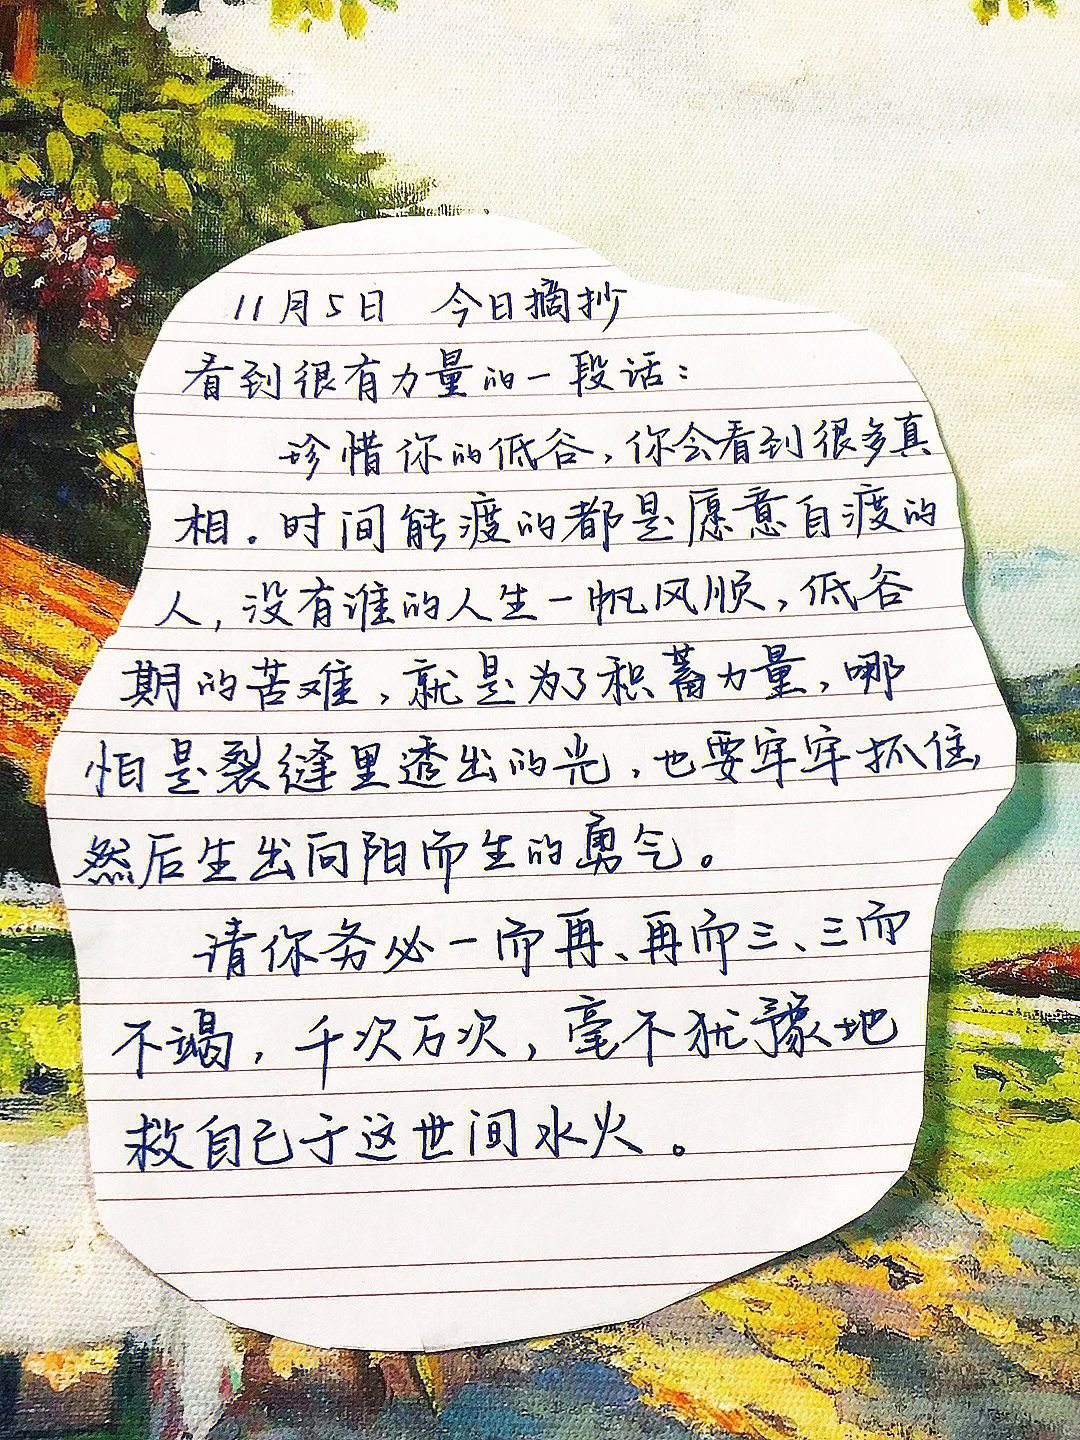 11月5日 今日摘抄
看到很有力量的一段话：
珍惜你的低谷，你会看到很多真
相。时间能渡的都是愿意自渡的
人，没有谁的人生一帆风顺，低谷
期的苦难，就是为了积蓄力量，哪
怕是裂缝里透出的光，也要牢牢抓住，
然后生出向阳而生的勇气。
请你务必一而再、再而三、三而
不竭，千次万次，毫不犹豫地
救自己于这世间水火。